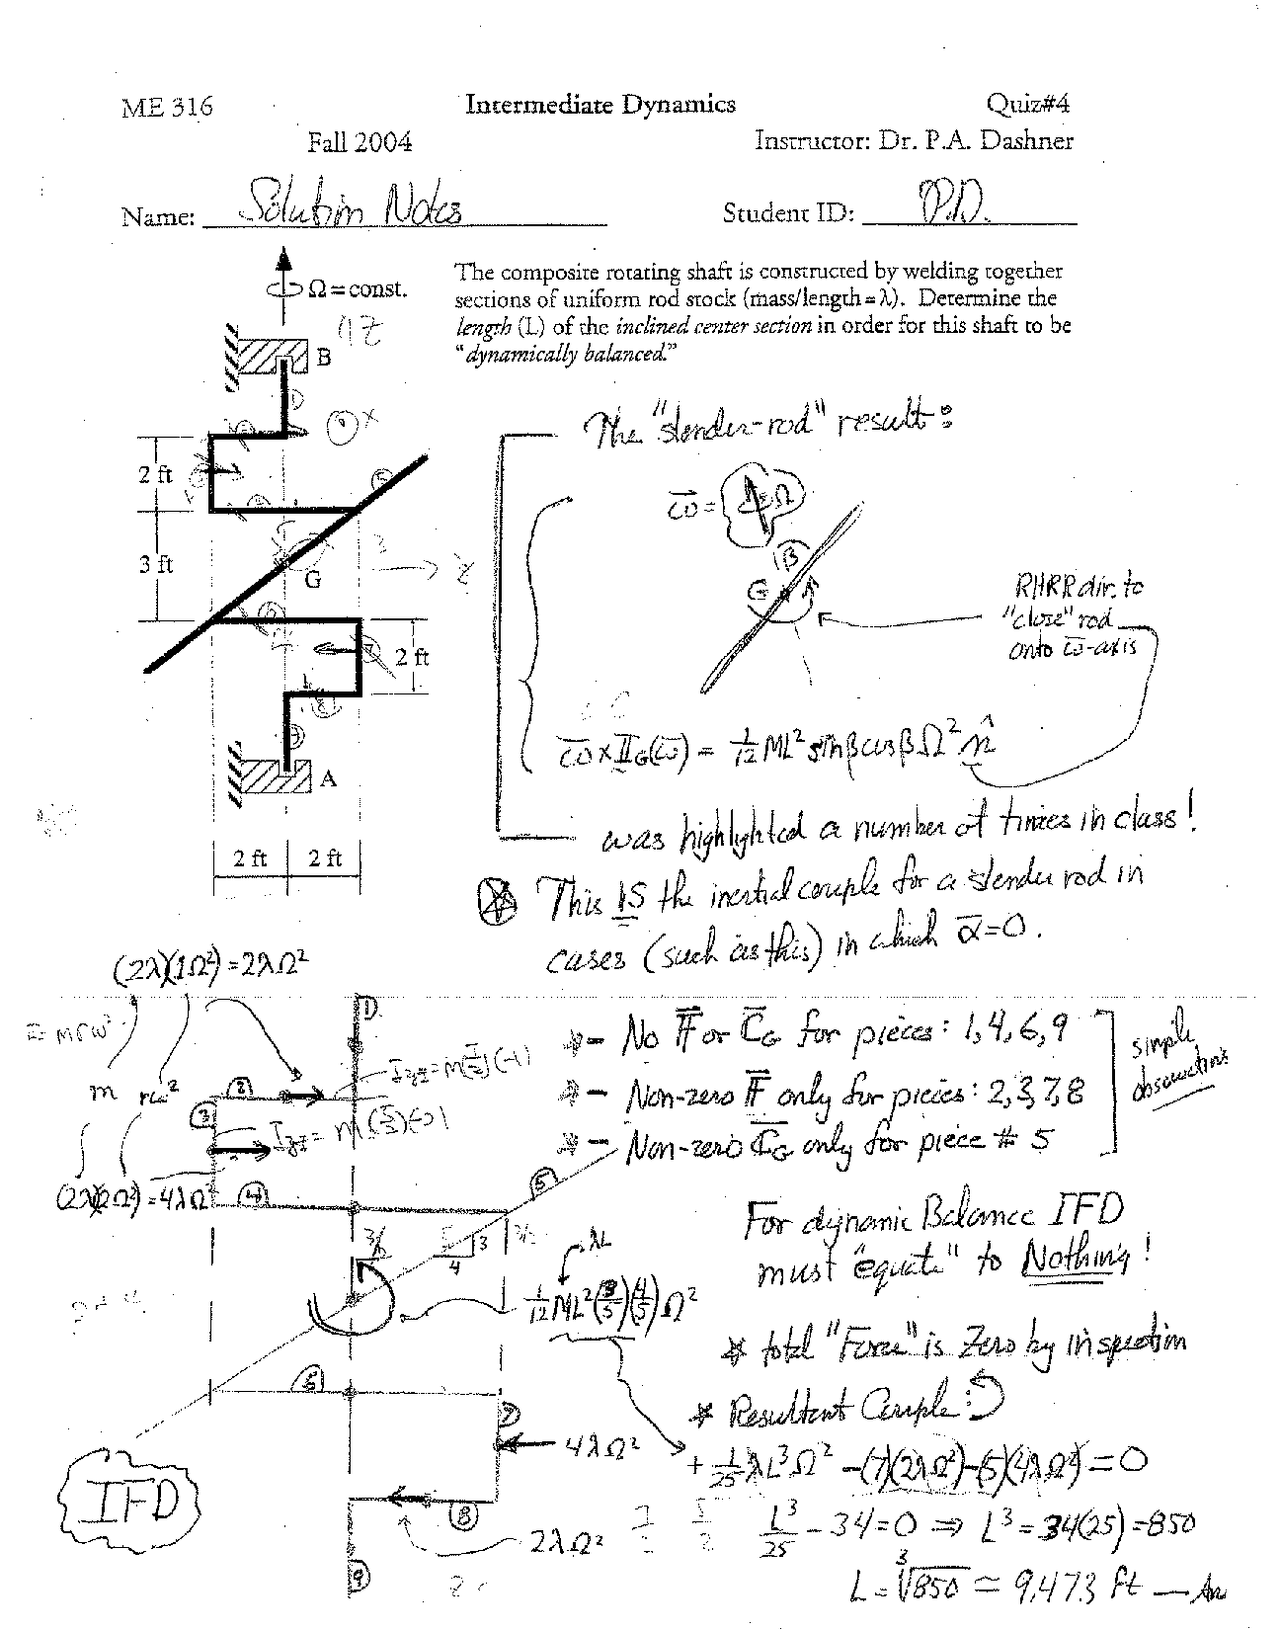 ME 316 Intermediate Dynamics Quiz#4
Fall 2004 Instructor: Dr. P.A. Dashner
Name: Solution Notes Student ID: P.D.
Ω = const.
The composite rotating shaft is constructed by welding together
sections of uniform rod stock (mass/length = λ). Determine the
length (L) of the inclined center section in order for this shaft to be
"dynamically balanced."
B
2 ft
3 ft
G
2 ft
A
2 ft 2 ft
The "slender-rod" result:
ω̄ = Ω
β
G
RHRR dir. to
"close" rod
onto ω̄-axis
ω̄ × II_G(ω̄) = 1/12 ML² sinβ cosβ Ω² n̂
was highlighted a number of times in class!
This IS the inertial couple for a slender rod in
cases (such as this) in which ᾱ=0.
(2λ)(1Ω²)=2λΩ²
m rω²
(2λ)(2Ω²)=4λΩ²
1
2
3
4
5
- No F̄ or C̄_G for pieces: 1, 4, 6, 9
- Non-zero F̄ only for pieces: 2, 3, 7, 8
- Non-zero C̄_G only for piece # 5
simple
observations
For dynamic Balance IFD
must "equate" to Nothing!
3
4
λL
1/12 ML²(3/5)(4/5)Ω²
* total "Force" is Zero by inspection
* Resultant Couple:
+ 1/25 λL³Ω² -(7)(2λΩ²)-(5)(4λΩ²)=0
L³/25 - 34=0 ⇒ L³=34(25)=850
L=∛850 ≃ 9.473 ft
6
7
4λΩ²
8
2λΩ²
9
IFD